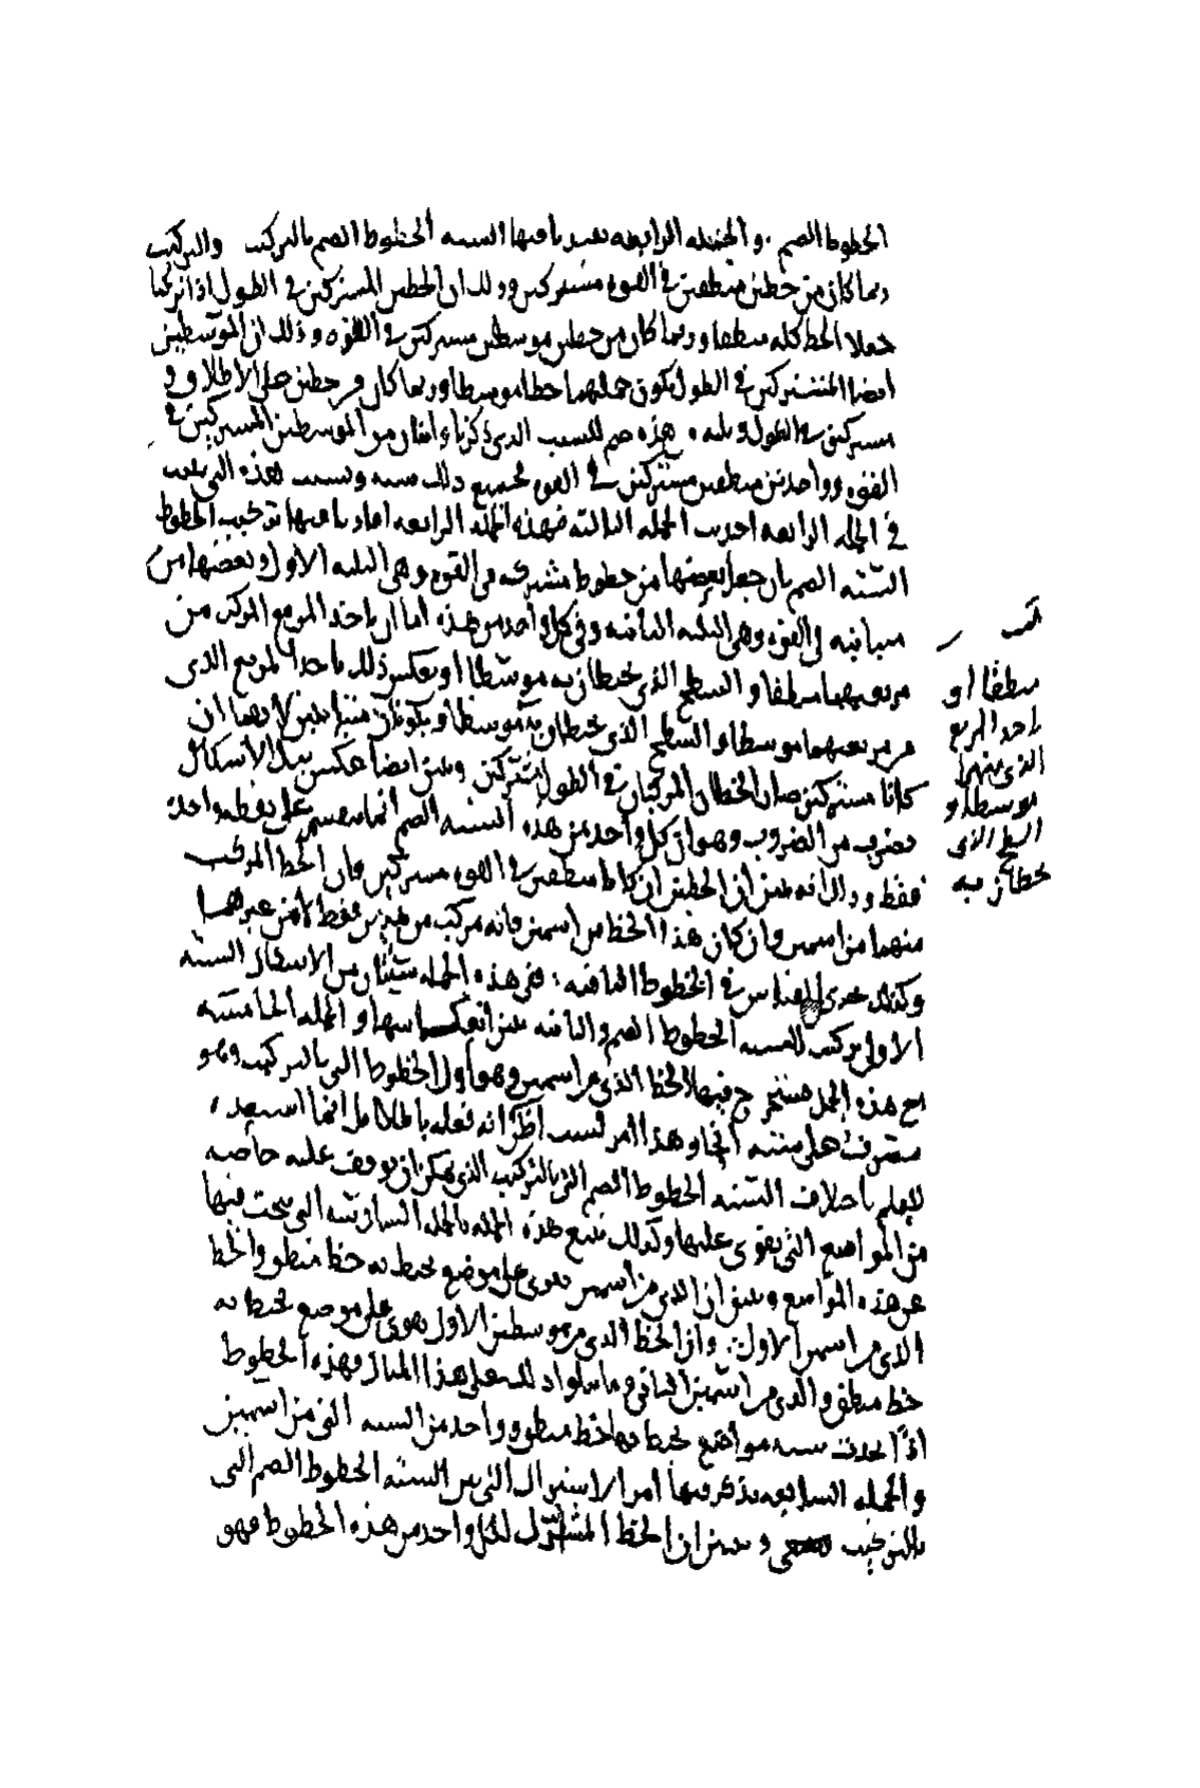 الخطوط الصم . والجملة الرابعة تفيد بامها الستة الخطوط الصم بالتركيب والتركيب
ربما كان من خطين منطقين في القوة مشتركين وذلك ان الخطين المشتركين في الطول اذا تركبا
جعلا الخط كله منطقا وربما كان من خطين موسطين مشتركين في القوة وذلك ان الموسطين
ايضا المشتركين في الطول يكون جملتهما خطا موسطا وربما كان من خطين على الاطلاق
مشتركين في الطول هذه صم للسبب الذي ذكرناه اثنان من الموسطين المشتركين في
القوة وواحد من منطقين مشتركين في القوة فجميع ذلك ستة ونسبت هذه التي
في الجملة الرابعة احدثت الجملة الثالثة فهذه الجملة الرابعة افادتنا فيها تركيب الخطوط
الستة الصم بان جعل بعضها من خطوط مشتركة في القوة وهي الثلثة الاول وبعضها من
متباينة في القوة وهي الثلثة الثانية وفي كل واحد من هذه اما ان ياخذ المربع المركب من
مربعيهما منطقا والسطح الذي يحيطان به موسطا او بعكس ذلك ياخذ المربع الذي
من مربعيهما موسطا والسطح الذي يحيطان به موسطا ويكونان متباينين لانهما ان
كانا مشتركين صار الخطان المركبان في الطول مشتركين وبين ايضا عكس تلك الاشكال
بضرب من الضروب وهو ان كل واحد من هذه الستة الصم انما ينقسم على نقطة واحدة
فقط وذلك انه بين ان الخطين ان كانا منطقين في القوة مشتركين فان الخط المركب
منهما من اسمين وان كان هذا الخط من اسمين فانه مركب من هذين فقط لا من غيرهما
وكذلك يجري القياس في الخطوط الباقية : ففي هذه الجملة ستتان من الاشكال الستة
الاولى تركب الستة الخطوط الصم والثانية تبين انعكاسها والجملة الخامسة
مع هذه الجمل يستخرج فيها الخط الذي من اسمين وهو اول الخطوط التي بالتركيب وهو
يتصرف على ستة انحاء وهذا امر لست اظن انه فعله باطلا بل انما استعد
للعلم باختلاف الستة الخطوط الصم التي بالتركيب الذي يمكن ان يوقف عليه خاصة
من المواضع التي يقوى عليها وكذلك يتبع هذه الجملة بالجملة السادسة التي يبحث فيها
عن هذه المواضع ويبين ان الذي من اسمين يقوى على موضع يحيط به خط منطق والخط
الذي من اسمين الاول : وان الخط الذي من موسطين الاول يقوى على موضع يحيط به
خط منطق والذي من اسمين الثاني وما يتلو ذلك على هذا المثال فهذه الخطوط
اذا احدثت ستة مواضع يحيط بها خط منطق وواحد من الستة التي من اسمين
والجملة السابعة يذكر فيها امر الاشتراك التي بين الستة الخطوط الصم التي
بالتركيب ويبين ان الخط المشارك لكل واحد من هذه الخطوط فهو
منطقا او
ياخذ المربع
الذي منهما
موسطا و
السطح الذي
يحيطان به